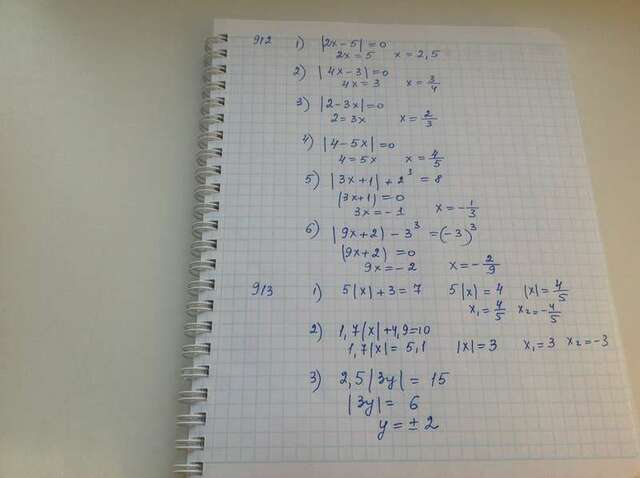 912 1) |2x-5|=0
2x=5 x=2,5
2) |4x-3|=0
4x=3 x=3/4
3) |2-3x|=0
2=3x x=2/3
4) |4-5x|=0
4=5x x=4/5
5) |3x+1|+2³=8
|3x+1)=0
3x=-1 x=-1/3
6) |9x+2)-3³=(-3)³
|9x+2)=0
9x=-2 x=-2/9
913 1) 5|x|+3=7 5|x)=4 |x|=4/5
x₁=4/5 x₂=-4/5
2) 1,7|x|+4,9=10
1,7|x|=5,1 |x|=3 x₁=3 x₂=-3
3) 2,5|3y|=15
|3y|=6
y=±2